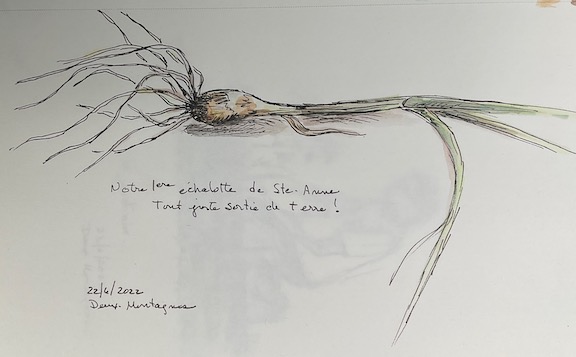 Notre 1ere échalotte de Ste-Anne
Tout juste sortie de terre !
22/4/2022
Deux-Montagnes